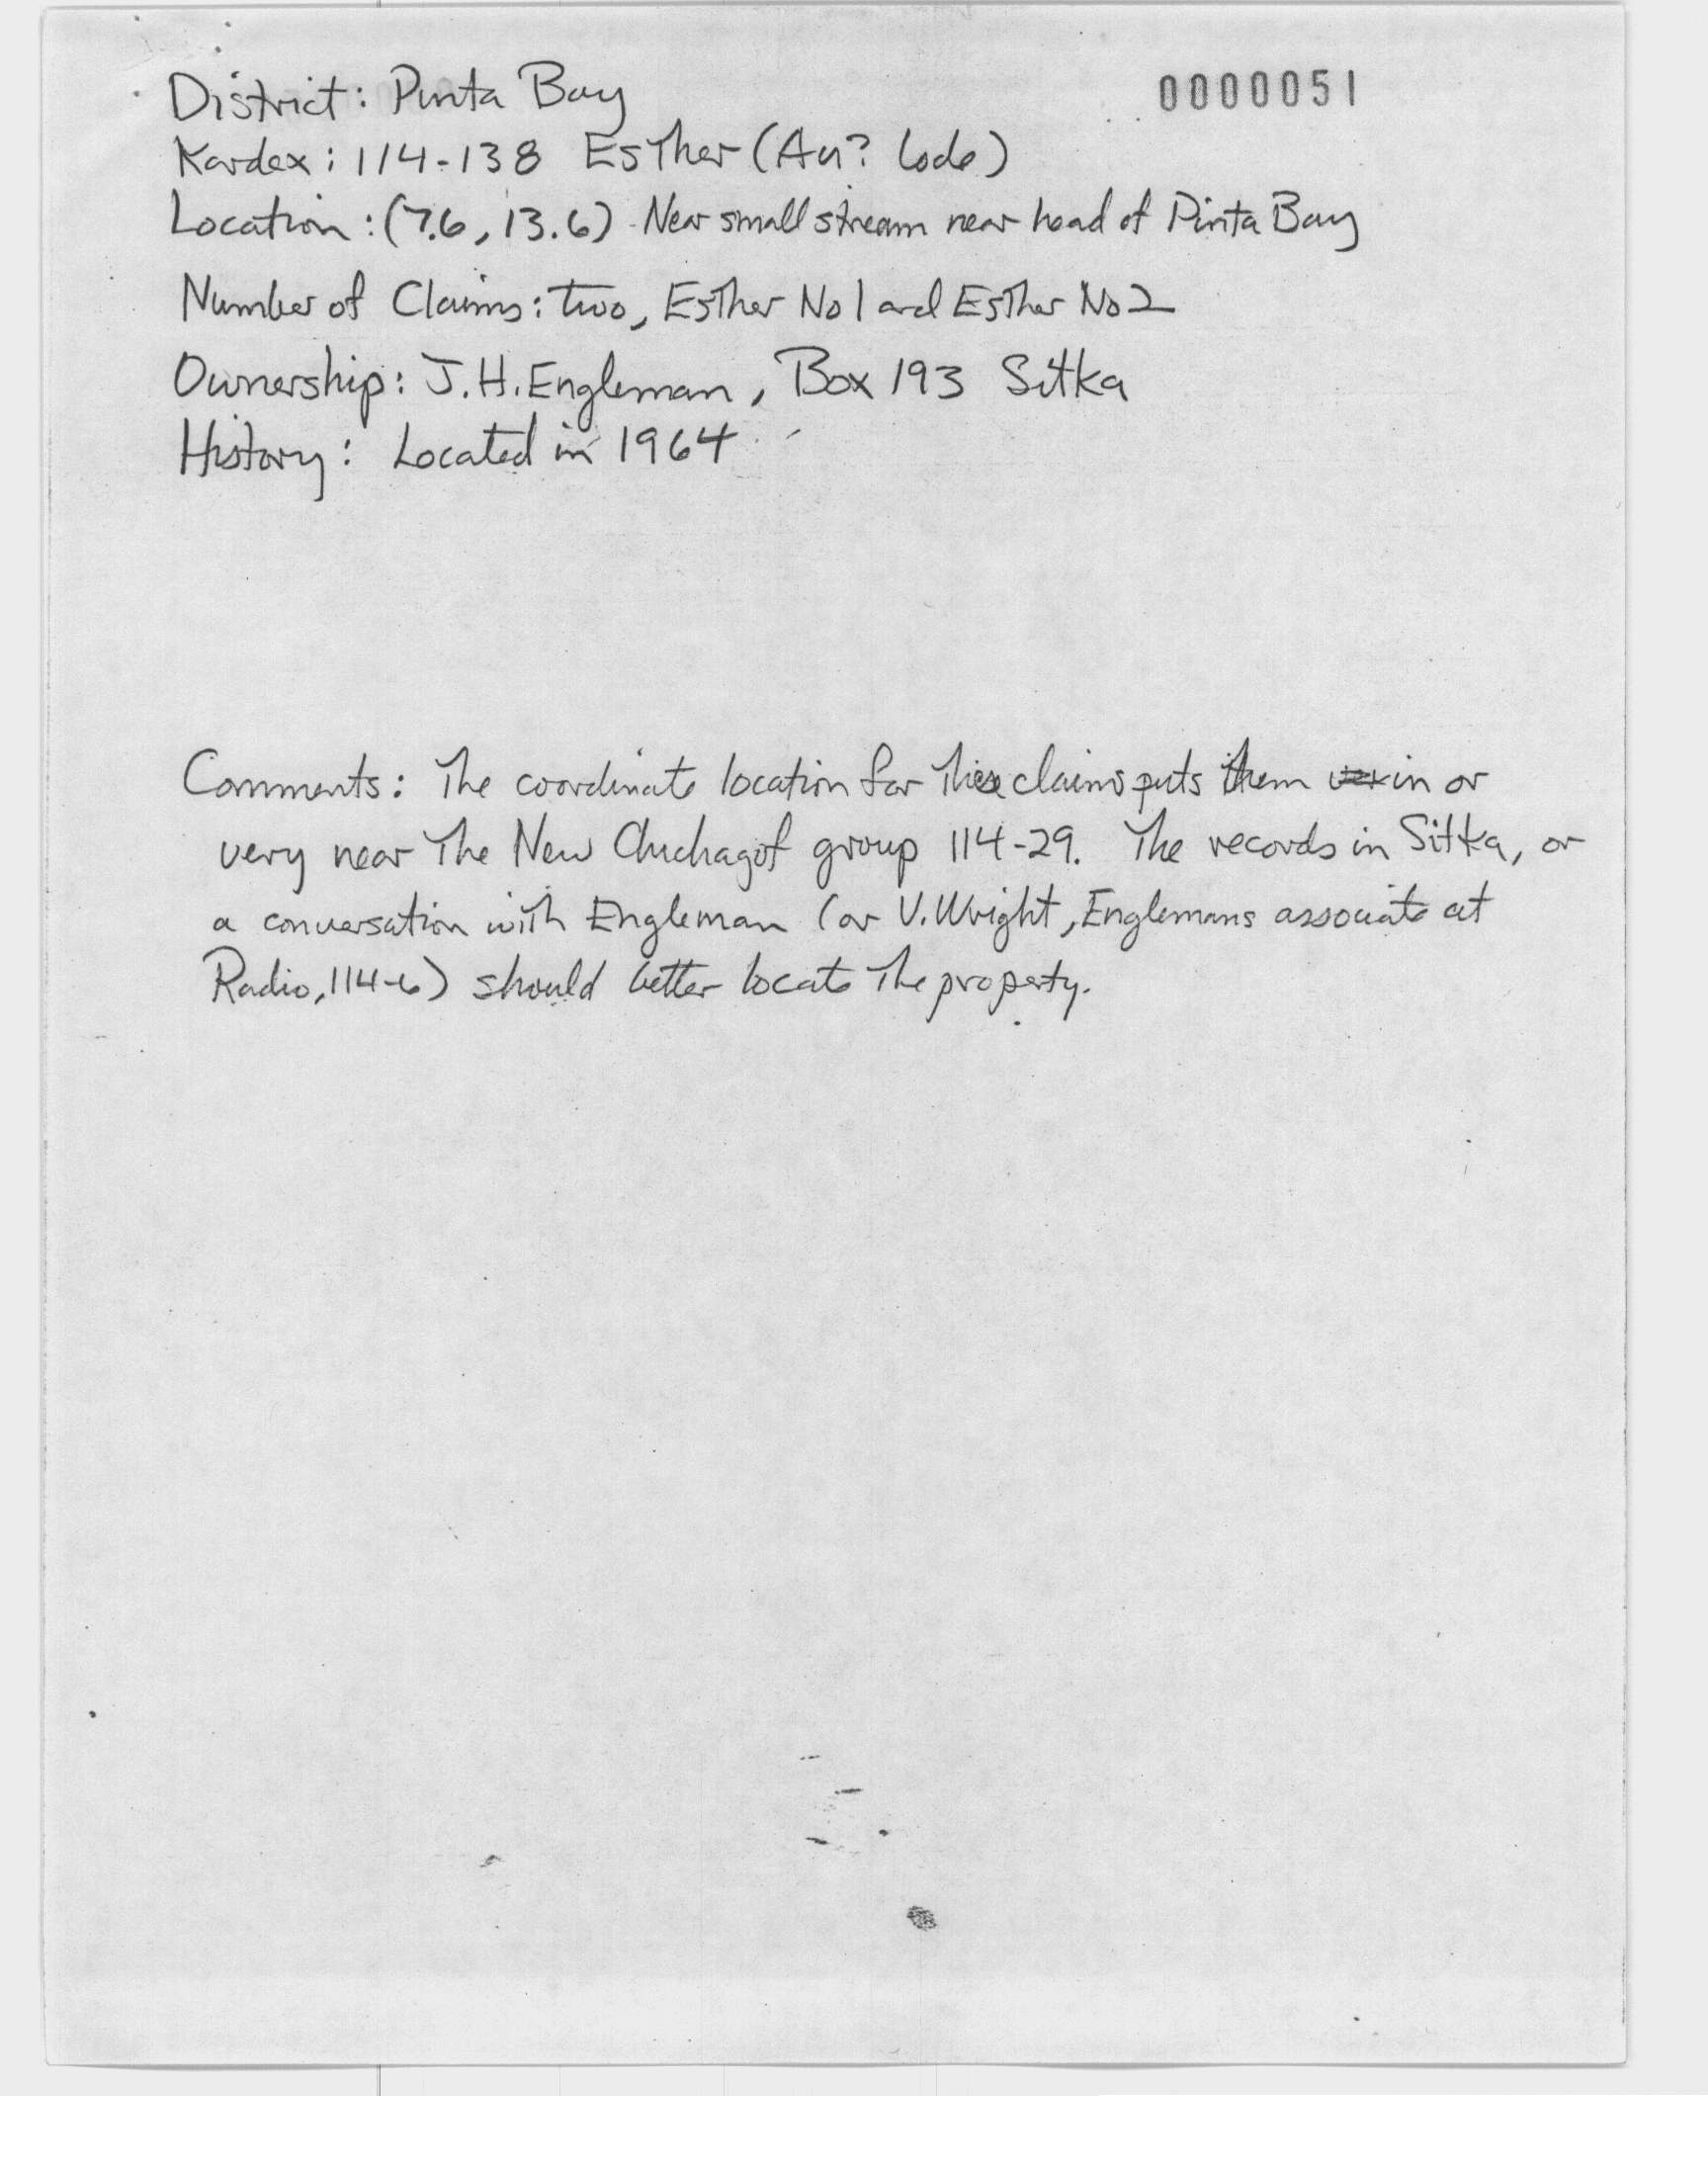 0000051
District: Pinta Bay
Kardex: 114-138 Esther (Au? lode)
Location: (7.6, 13.6) Near small stream near head of Pinta Bay
Number of Claims: two, Esther No 1 and Esther No 2
Ownership: J.H. Engleman, Box 193 Sitka
History: Located in 1964
Comments: The coordinate location for these claims puts them in or
very near The New Chichagof group 114-29. The records in Sitka, or
a conversation with Engleman (or V. Wright, Englemans associate at
Radio, 114-6) should better locate The property.